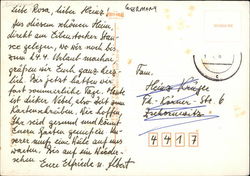 Liebe Rosa, lieber Heinz
aus diesem schönen Heim,
direkt am Eibenstocker Stau-
see gelegen, wo wir noch bis
zum 24.4. Urlaub machen
grüßen wir Euch ganz herz-
lich. Bis jetzt hatten wir
fast sommerliche Tage. Heute
ist dicker Nebel also Zeit zum
Kartenschreiben. Wir hoffen,
Ihr seid gesund und könnt
Euren Garten genießen.
unserer muß eine Weile auf uns
warten. Bis auf ein Wieder-
Eure Elfriede u. Albert
GERMANY
Fam.
Heinz Krüger
Str. 6
Zschornewitz
4417